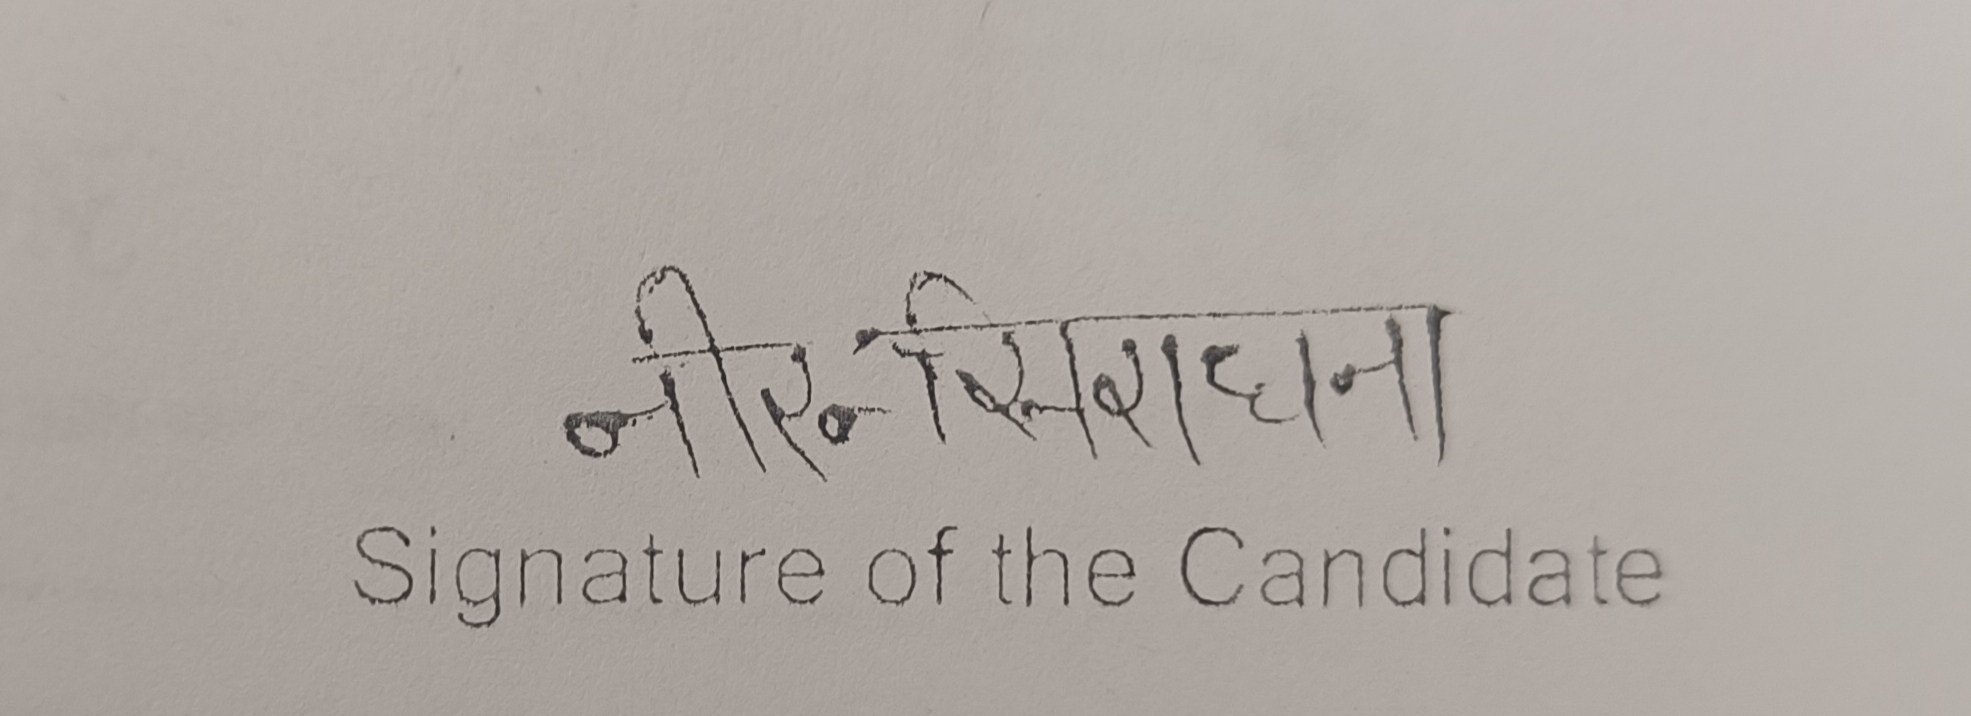 नीरू सिराधना
Signature of the Candidate